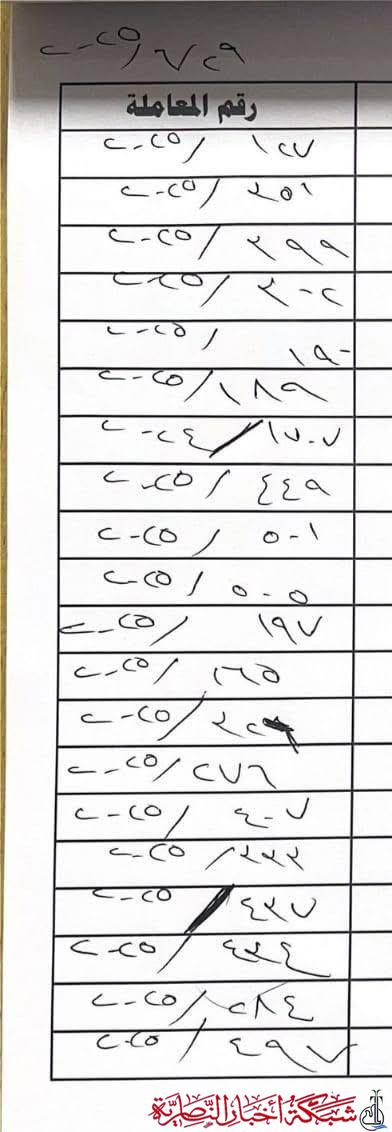 ٧٢٩/٢٠٢٥
رقم المعاملة
١٢٧/٢٠٢٥
٣٥١/٢٠٢٥
٣٩٩/٢٠٢٥
٣٠٢/٢٠٢٥
١٩٠/٢٠٢٥
١٨٩/٢٠٢٥
١٧٠٧/٢٠٢٤
٤٤٩/٢٠٢٥
٥٠١/٢٠٢٥
٥٠٥/٢٠٢٥
١٩٧/٢٠٢٥
١٦٥/٢٠٢٥
/٢٠٢٥
٢٧٦/٢٠٢٥
٤٠٧/٢٠٢٥
٣٣٣/٢٠٢٥
٤٣٧/٢٠٢٥
٤٣٤/٢٠٢٥
٢٨٤/٢٠٢٥
٤٩٧/٢٠٢٥
شبكة أخبار الناصرية